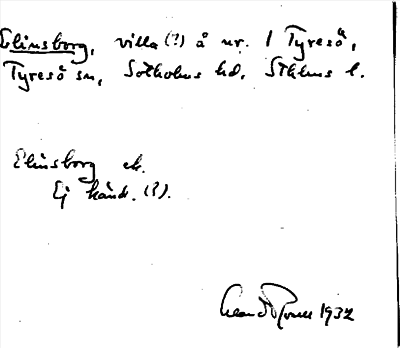 Elinsborg, villa (?) å nr. 1 Tyresö,
Tyresö sn, Sotholms hd, Sthlms l.
Elinsborg ek.
Ej känd. (?).
1932